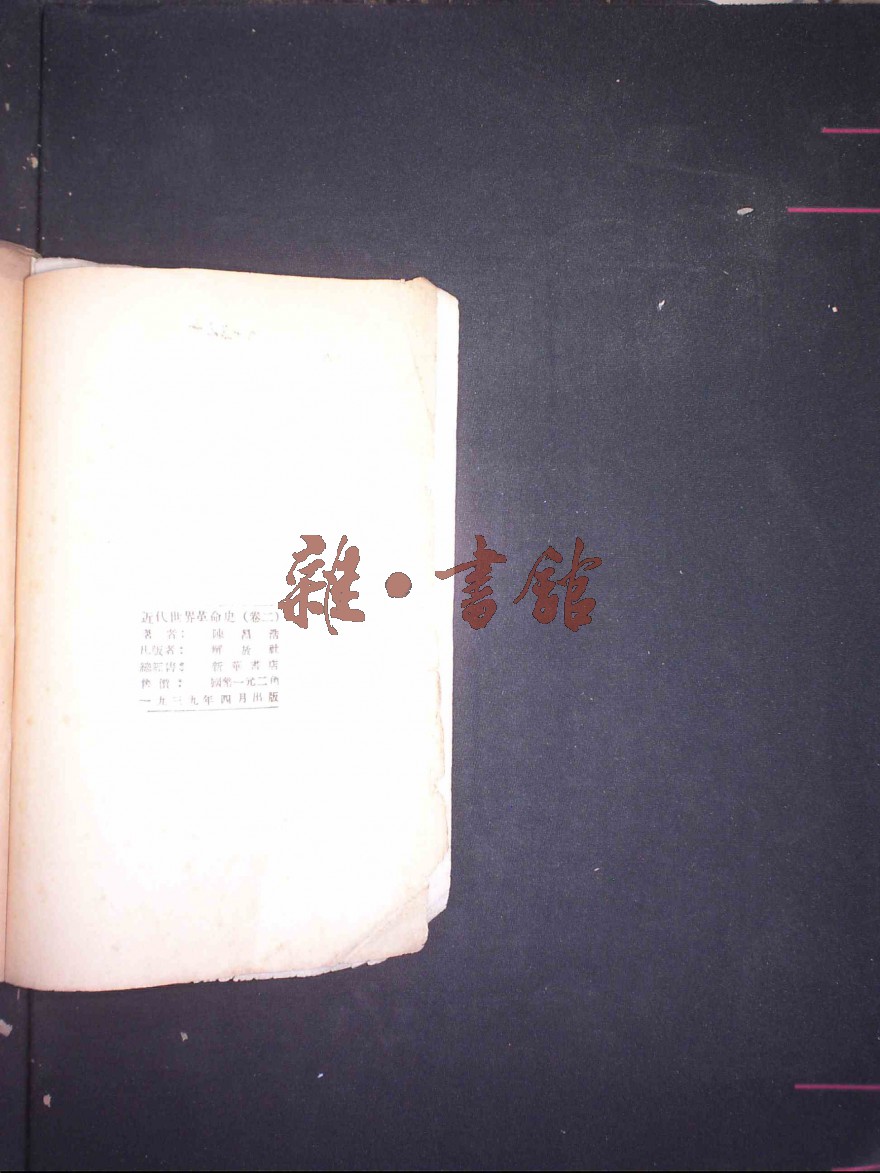 近代世界革命史（卷二）
著者： 陳昌浩
出版者： 解放社
總經售： 新華書店
售價： 國幣一元二角
一九三九年四月出版
雜·書館